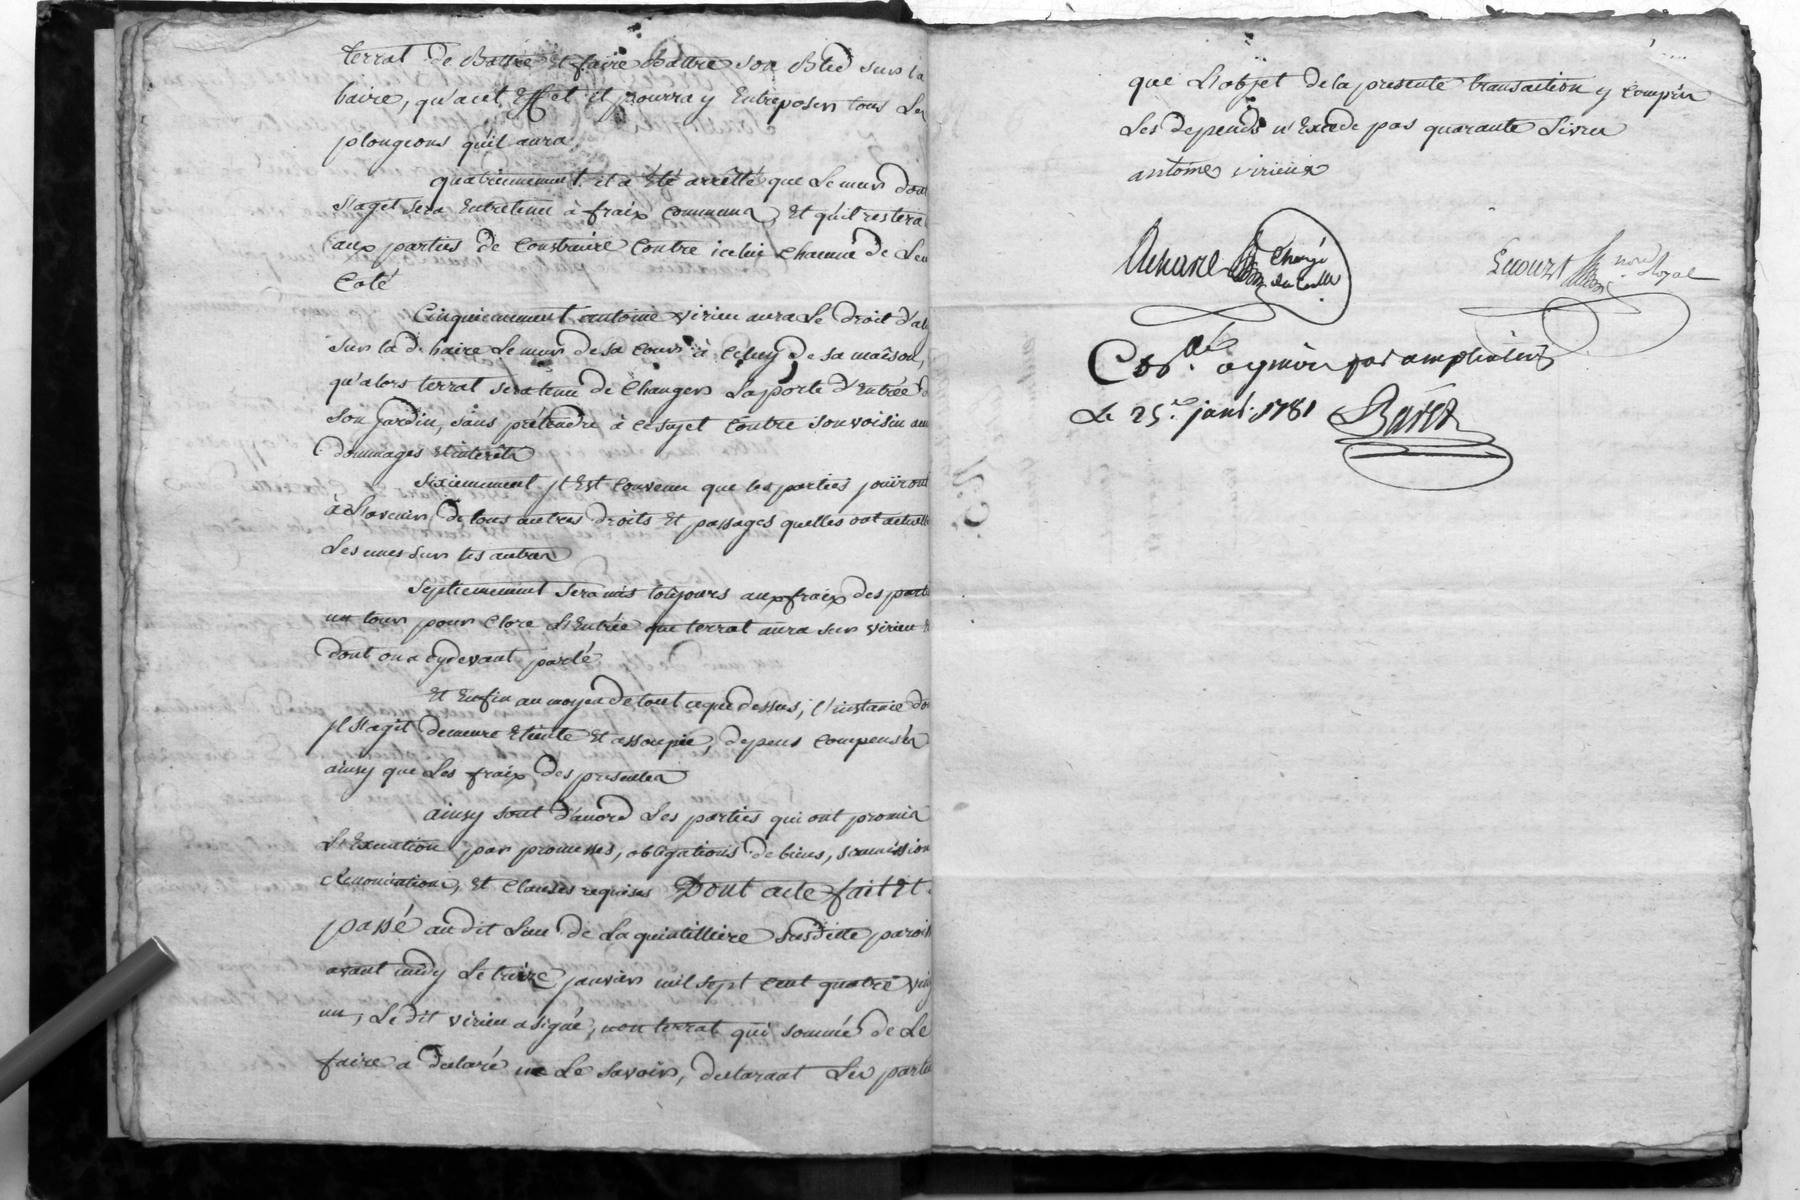 terrat de Battre Et faire Battre son Bled sur la
haire, qu'a cet Effet il pourra y Entreposer tous Les
plongeons quil aura
quatriemement il a Eté arretté que Le mur dont
s'aget sera Entretenu à fraix communs, Et qu'il restera
aux parties de Construire Contre icelui chacune de Leu
Coté
Cinquiemement antoine virieu aura Le droit d'al
sur lad. haire Le mur de sa Cour à Celuy de sa maison,
qu'alors terrat sera tenu de Changer La porte d'Entrée d
son jardin, sans prétendre à ce sujet Contre son voisin au
dommages Et interets
sixiemement jl Est Convenu que les parties jouiront
à L'avenir de tous autres droits Et passages quelles ont actuelle
Les unes sur les autres
septiemement sera mis toujours aux fraix des parti
un tour pour Clore L'Entrée que terrat aura sur virieu E
dont on a cydevant parlé
Et Enfin au moyen de tout ce que dessus, l'instance do
jl s'agit demeure Eteinte Et assoupie, depens compensés
ainsy que Les fraix des presentes
ainsy sont d'accord Les parties qui ont promis
L'Execution par promesses, obligations de biens, soumission
Renonciations, Et Clauses requises Dont acte fait Et
passé au dit Lieu de La quintilliere susditte parois
avant midy Le treize janvier mil sept cent quatre vin
un, Le dit virieu a signé, non terrat qui sommé de Le
faire a declaré ne Le savoir, declarant Les partie
que L'objet de la presente transaction y compris
Les depends n'Excede pas quarante Livres
antoine virieux
chargé
nore Royal
Con.
Le 25e janv. 1781